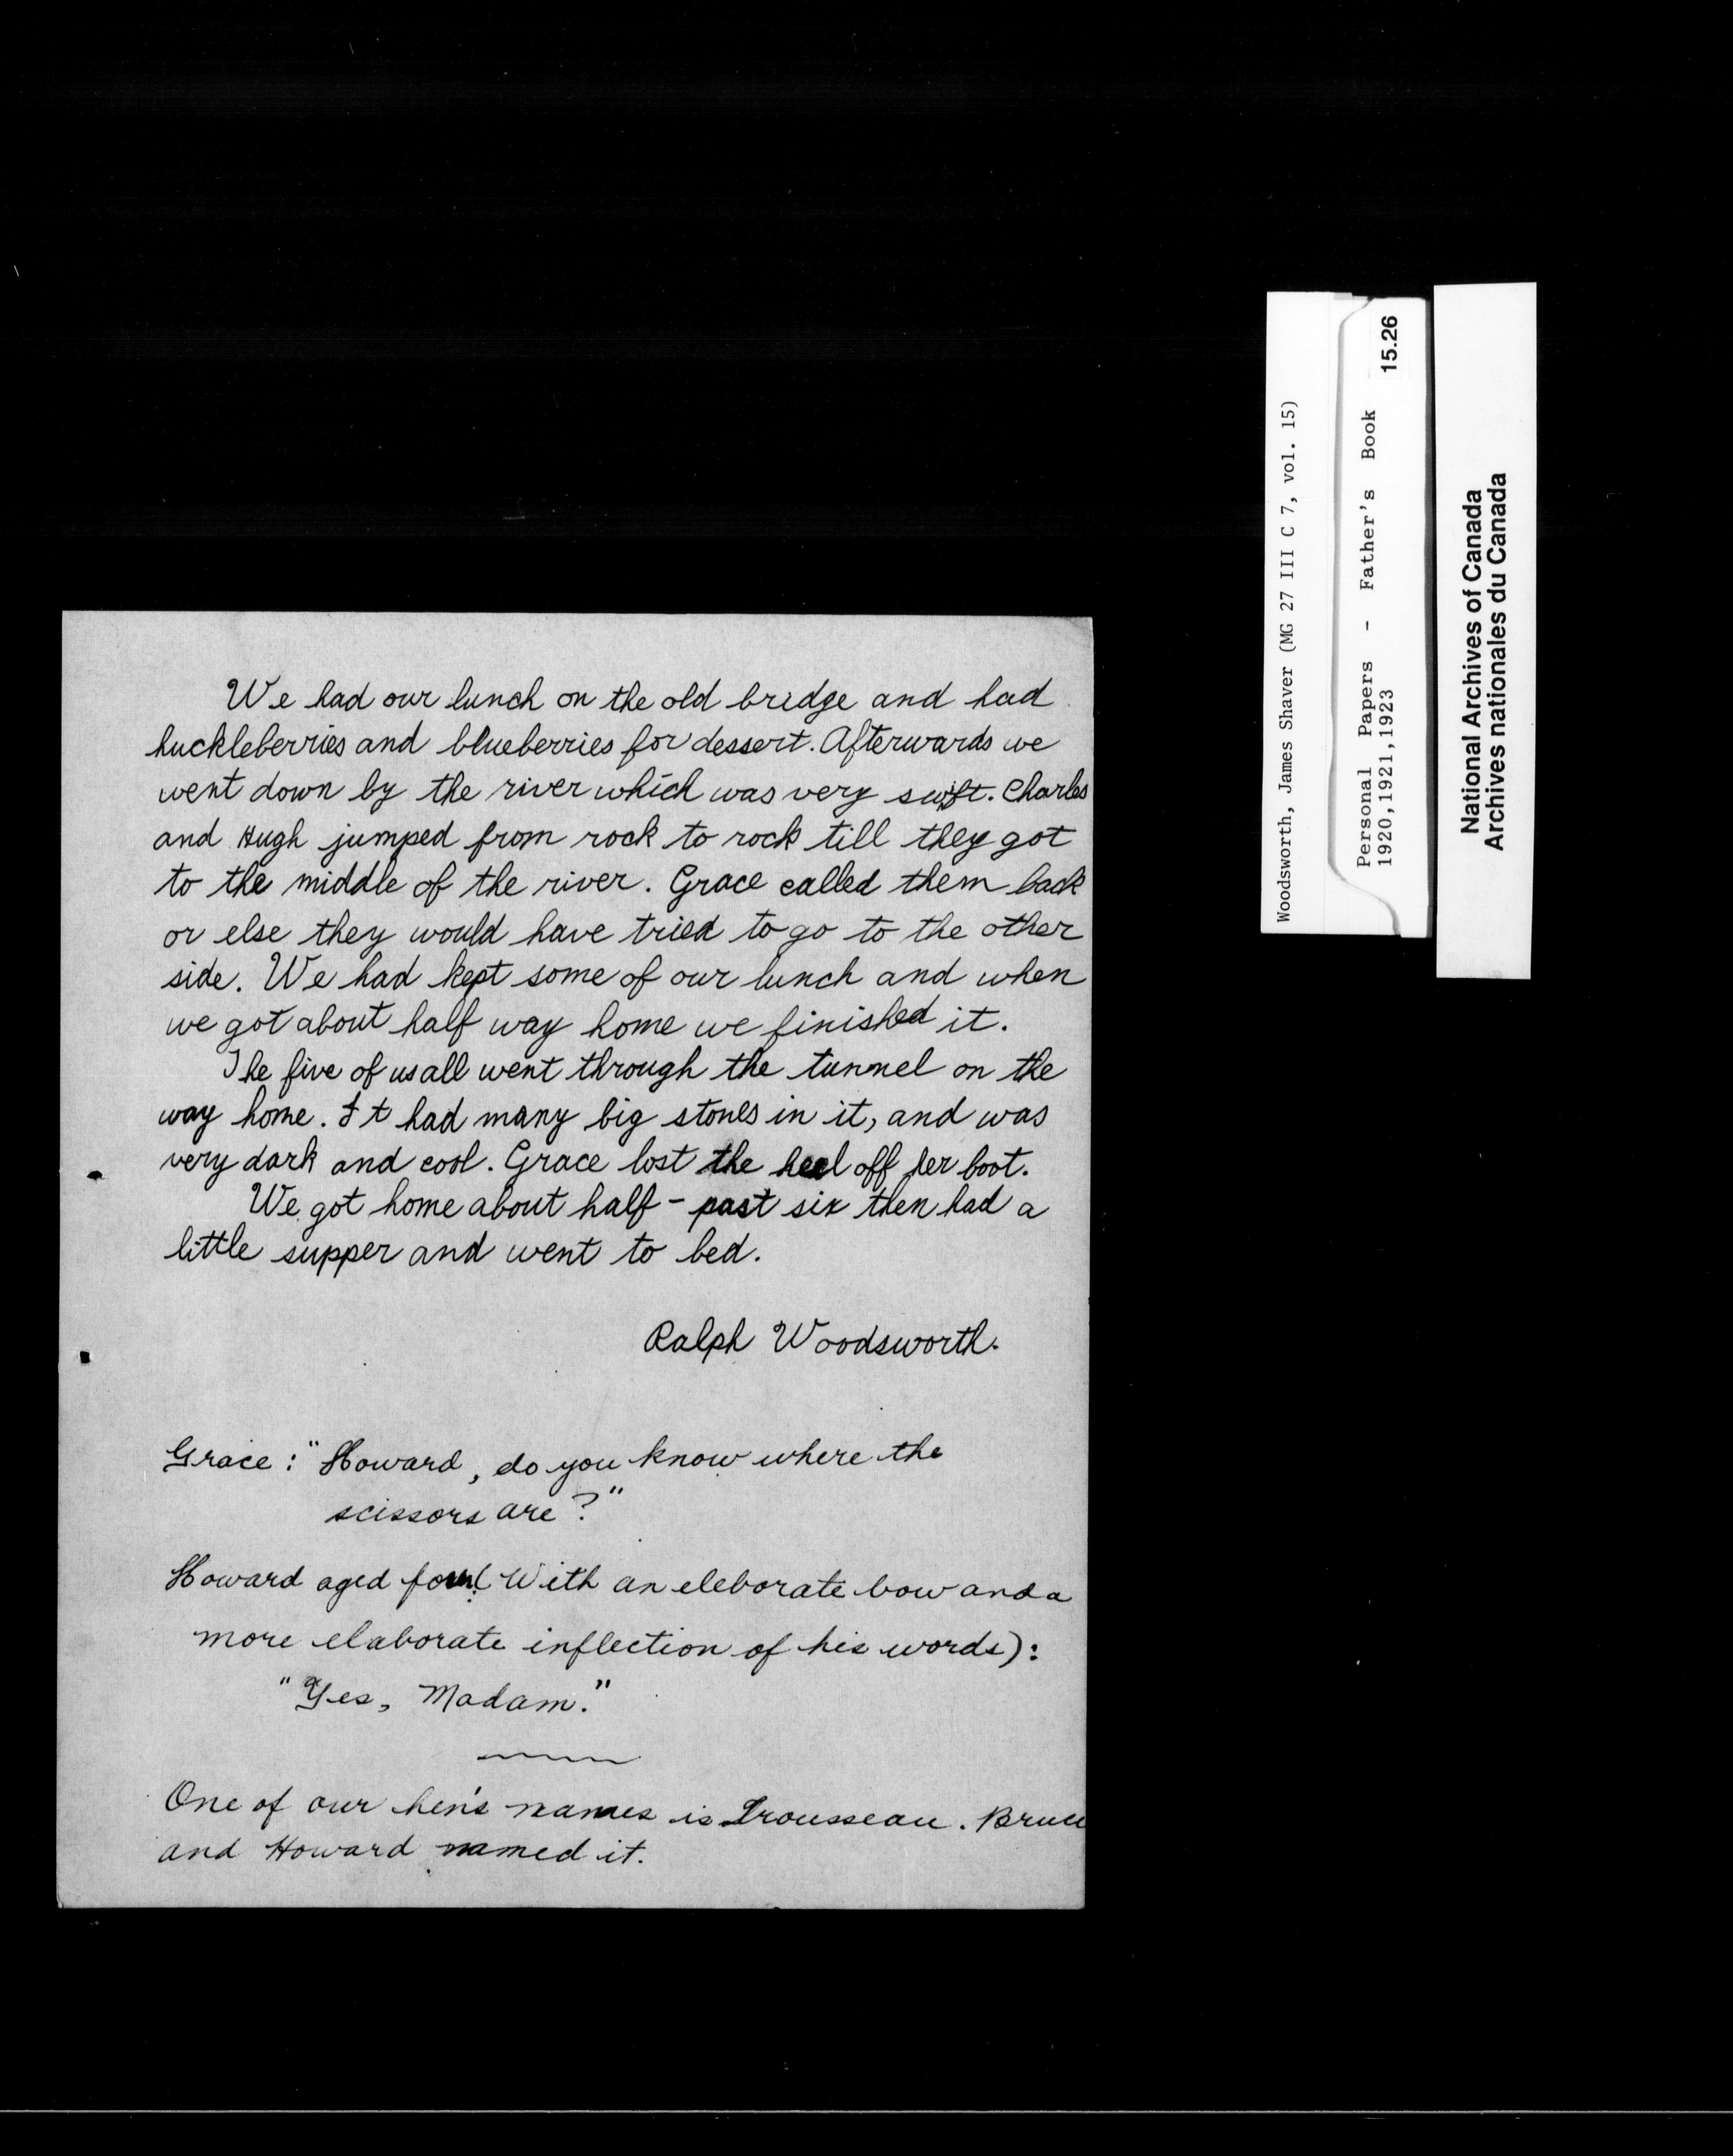 We had our lunch on the old bridge and had
huckleberries and blueberries for dessert. Afterwards we
went down by the river which was very swift. Charles
and Hugh jumped from rock to rock till they got
to the middle of the river. Grace called them back
or else they would have tried to go to the other
side. We had kept some of our lunch and when
we got about half way home we finished it.
The five of us all went through the tunnel on the
way home. It had many big stones in it, and was
very dark and cool. Grace lost the heel off her boot.
We got home about half-past six then had a
little supper and went to bed.
Ralph Woodsworth.
Grace: "Howard, do you know where the
scissors are?"
Howard aged four (With an eleborate bow and a
more elaborate inflection of his words):
"Yes, Madam."
One of our hen's names is Trousseau. Bruce
and Howard named it.
Woodsworth, James Shaver (MG 27 III C 7, vol. 15)
Personal Papers - Father's Book
1920,1921,1923
15.26
National Archives of Canada
Archives nationales du Canada